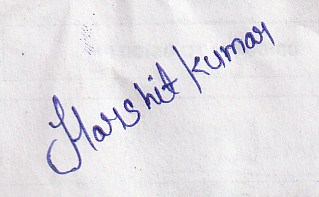 Harshit kumar